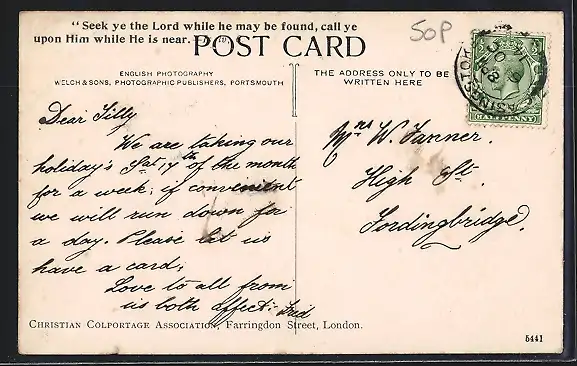 "Seek ye the Lord while he may be found, call ye
upon Him while He is near.
POST CARD
50P
ENGLISH PHOTOGRAPHY
WELCH & SONS, PHOTOGRAPHIC PUBLISHERS, PORTSMOUTH
THE ADDRESS ONLY TO BE
WRITTEN HERE
HALFPENNY
Dear Tilly
We are taking our
holiday's Sat, 17th of the month
for a week, if convenient
we will run down for
a day. Please let us
have a card,
Love to all from
us both affect:
Mrs W. Tanner.
High St.
Fordingbridge.
CHRISTIAN COLPORTAGE ASSOCIATION, Farringdon Street, London.
5441